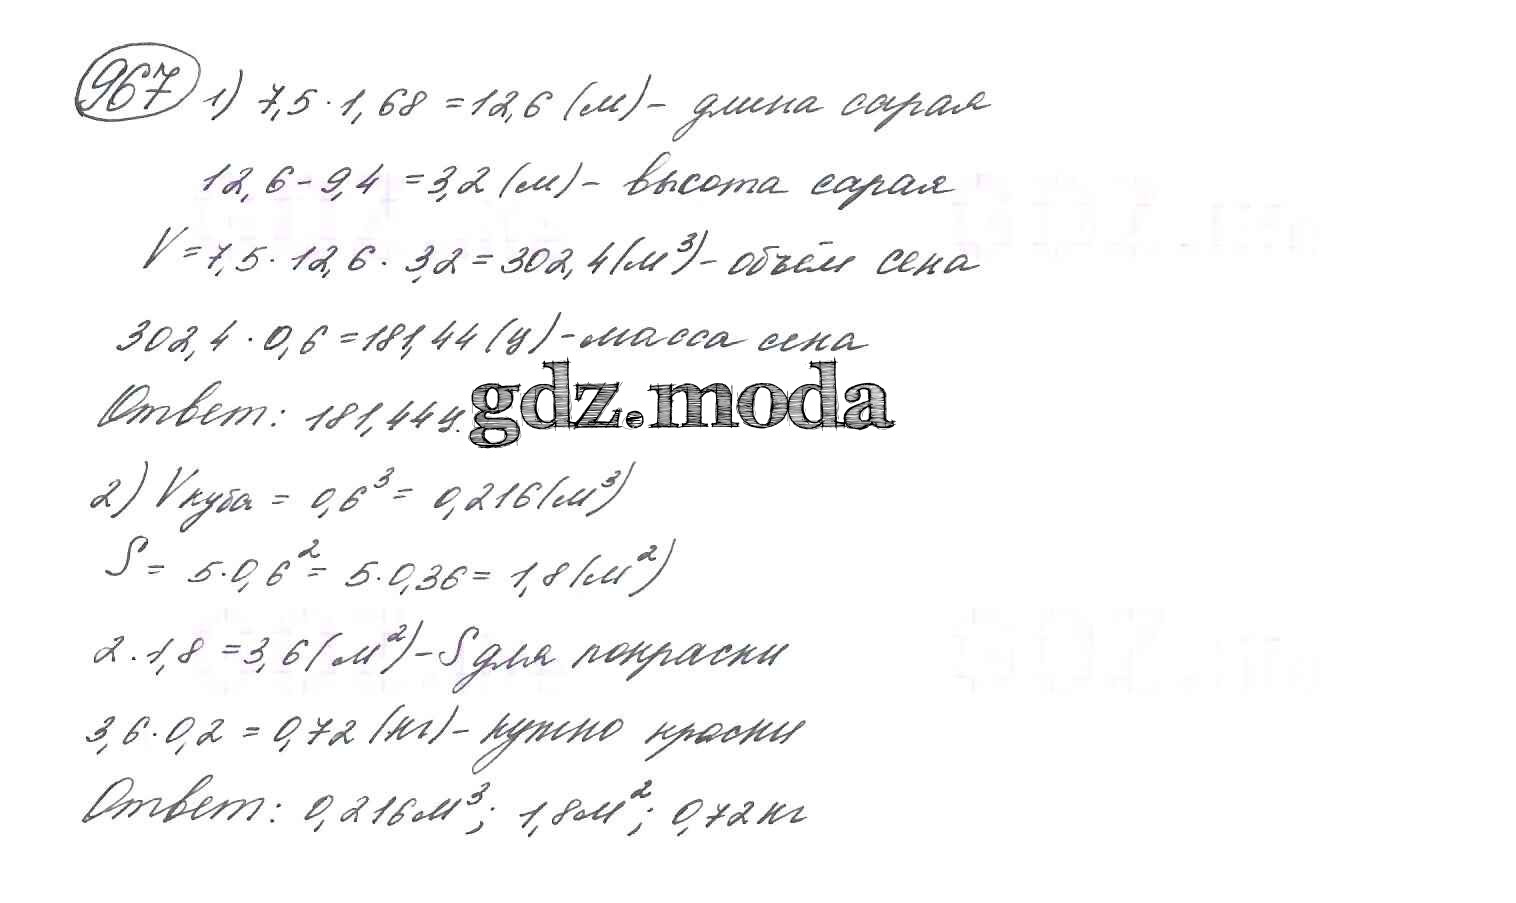 967 1) 7,5 · 1,68 = 12,6 (м) - длина сарая
12,6 - 9,4 = 3,2 (м) - высота сарая
V = 7,5 · 12,6 · 3,2 = 302,4 (м³) - объём сена
302,4 · 0,6 = 181,44 (ц) - масса сена
Ответ: 181,44 ц.
gdz.moda
2) Vкуба = 0,6³ = 0,216 (м³)
S = 5 · 0,6² = 5 · 0,36 = 1,8 (м²)
2 · 1,8 = 3,6 (м²) - S для покраски
3,6 · 0,2 = 0,72 (кг) - нужно краски
Ответ: 0,216 м³; 1,8 м²; 0,72 кг